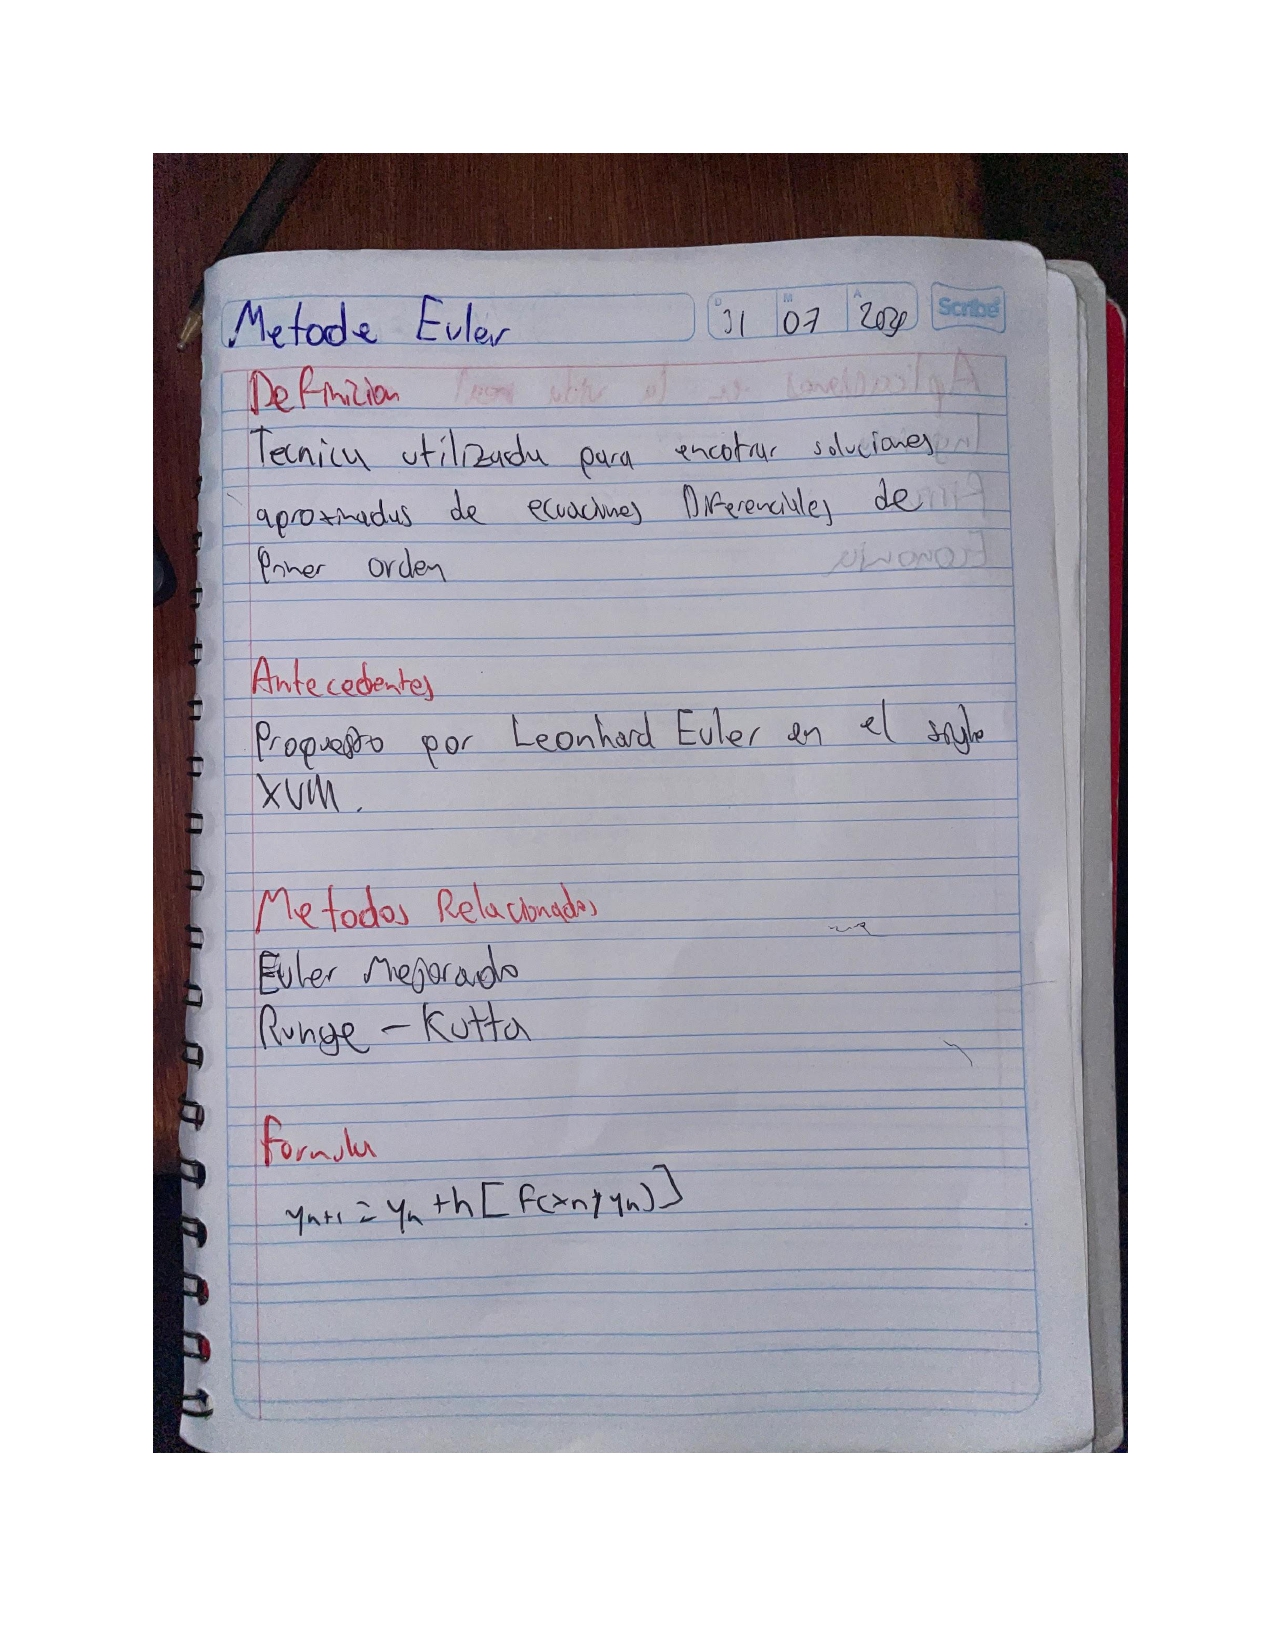 Metodo Euler
31 07 2024
Scribe
Definizion
Tecnica utilizada para encotrar soluciones
aproximadas de ecuaciones Diferenciales de
Primer orden
Antecedentes
Propuesto por Leonhard Euler en el siglo
XVIII.
Metodos Relacionados
Euler Mejorado
Runge - Kutta
Formula
yn+1 = yn + h [f(xn, yn)]